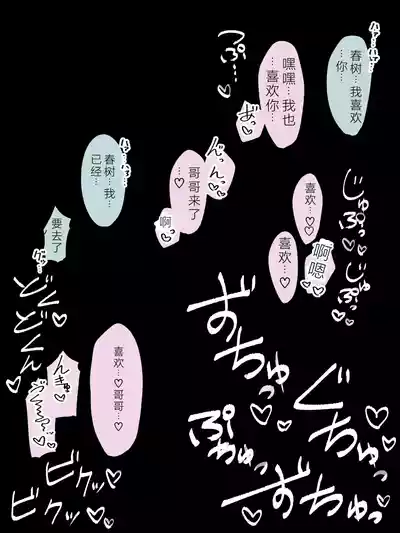 ハァ…ハァ…
春树…我喜欢
…你…
嘿嘿…我也
…喜欢你…
あ"っ♡
っぷ…
じゅぷっ♡じゅぷっ♡
喜欢…♡
喜欢…♡
啊嗯♡
んっんっ♡
哥哥来了
…♡
啊♡
春树…我…
已经…
要去了
どくどくん♡
ずちゅっ♡
ぐちゅっ♡
ぷちゅっ♡
ずちゅっ♡
喜欢…♡哥哥…♡
んきゅ♡
ビクッ♡
ビクッ♡